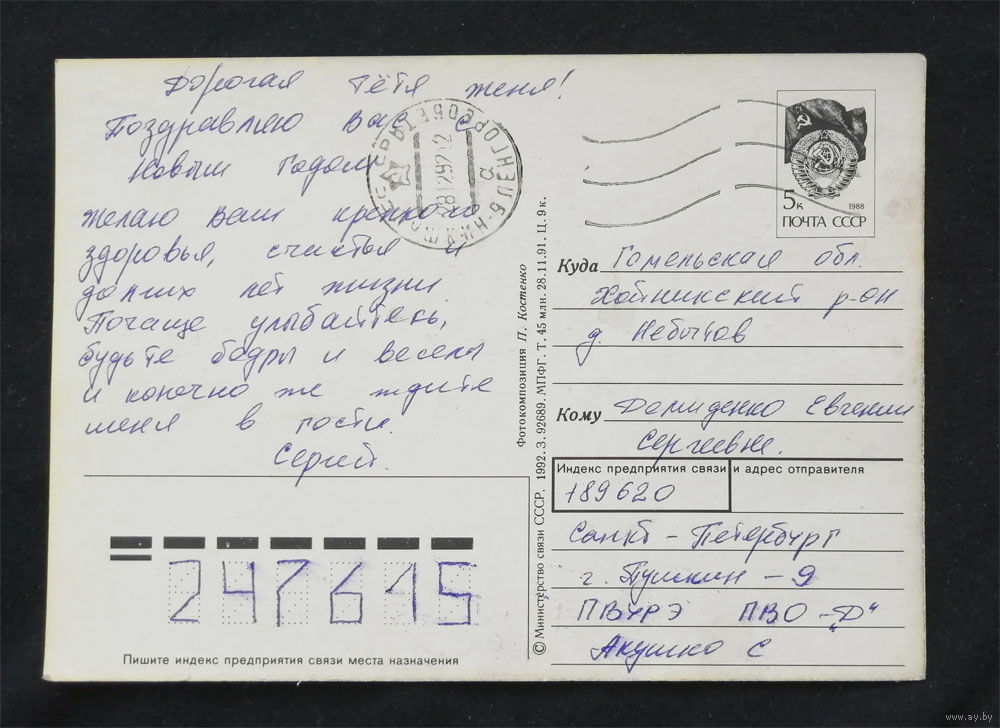 Дорогая тётя Женя!
Поздравляю вас с
Новым Годом
желаю вам крепкого
здоровья, счастья и
долгих лет жизни.
Почаще улыбайтесь,
будьте бодры и веселы
и конечно же ждите
меня в гости.
Сергей.
5к
1988
ПОЧТА СССР
Куда Гомельская обл.
Хойникский р-он
д. Небытов
Кому Демиденко Евгении
Сергеевне.
Индекс предприятия связи и адрес отправителя
189620
Санкт-Петербург
г. Пушкин - 9
ПВУРЭ ПВО „Д“
Акушко С
247615
Пишите индекс предприятия связи места назначения
Фотокомпозиция П. Костенко
© Министерство связи СССР, 1992. З. 92689. МПФГ. Т. 45 млн. 28.11.91. Ц. 9 к.
www.ay.by